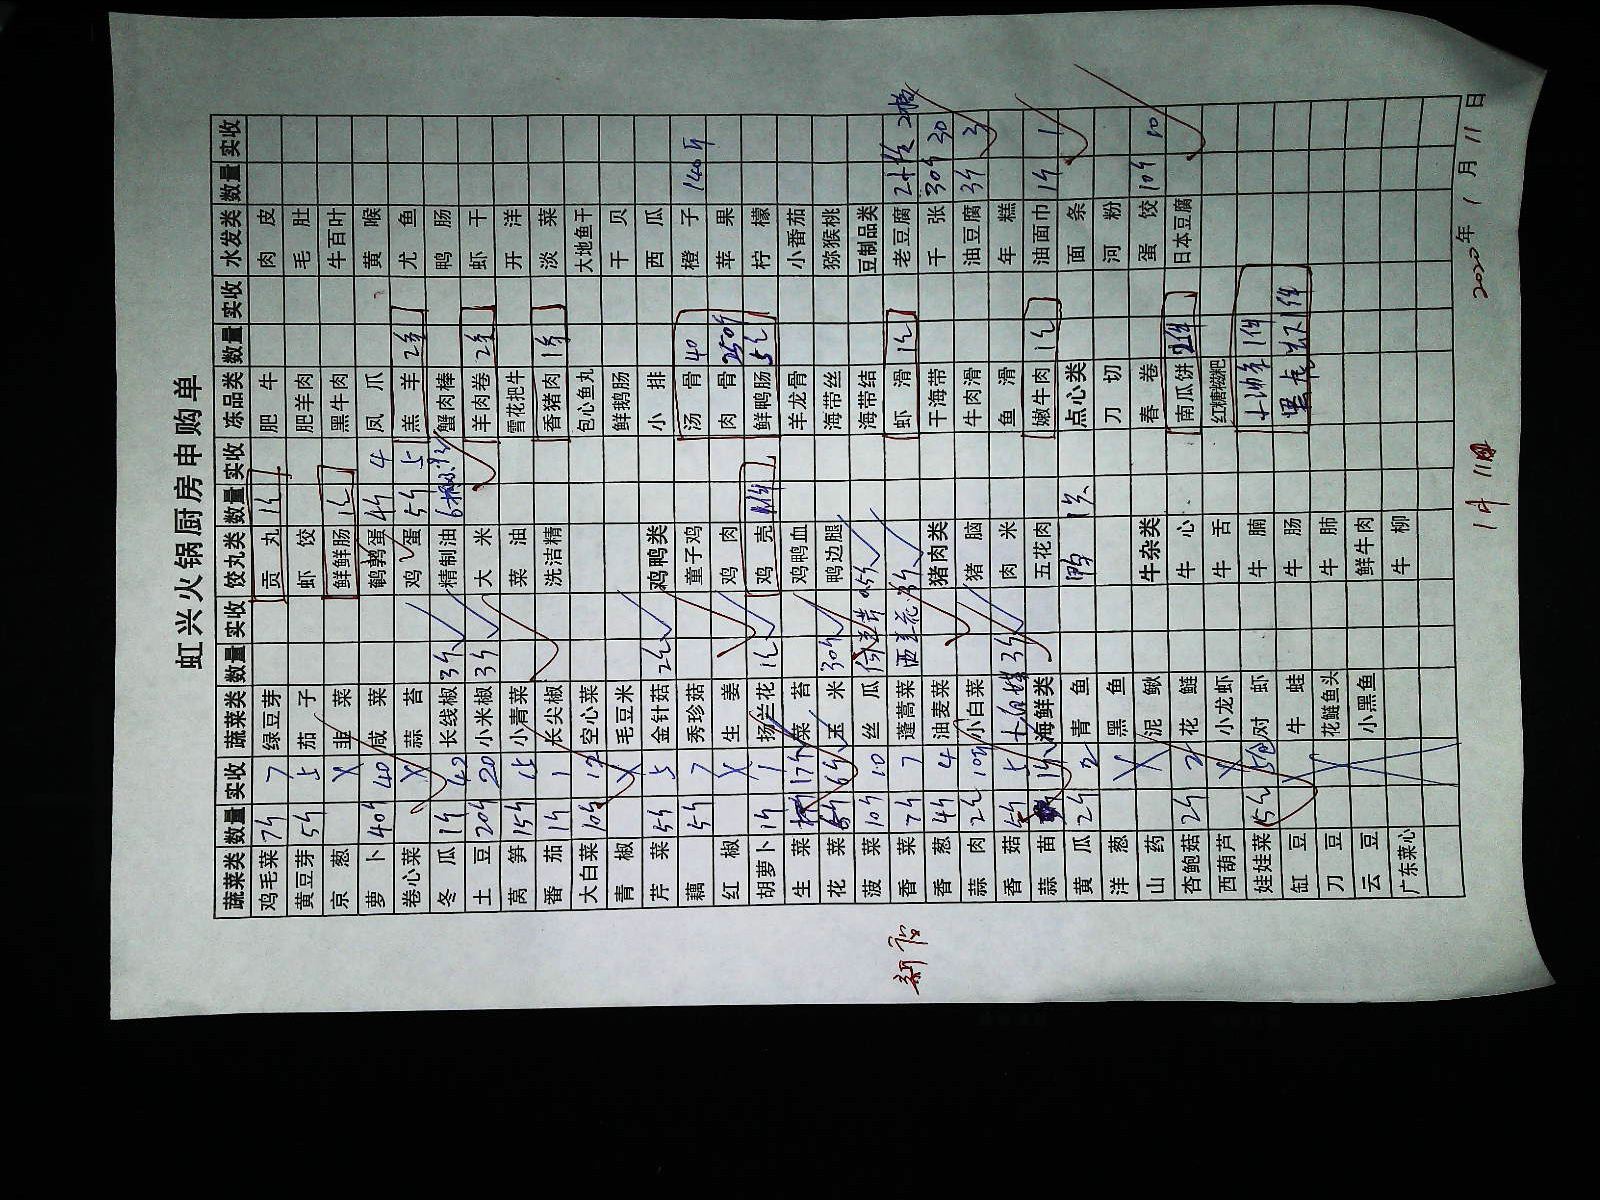 虹兴火锅厨房申购单
蔬菜类 数量 实收 蔬菜类 数量 实收 饺丸类 数量 实收 冻品类 数量 实收 水发类 数量 实收
鸡毛菜 7斤 7 绿豆芽 贡丸 1件 肥牛 肉皮
黄豆芽 5斤 5 茄子 虾饺 肥羊肉 毛肚
京葱 X 韭菜 鲜鲜肠 1件 黑牛肉 牛百叶
萝卜 40斤 40 咸菜 鹌鹑蛋 4斤 4 凤爪 黄喉
卷心菜 X 蒜苔 鸡蛋 5斤 5 羔羊 2条 尤鱼
冬瓜 1斤 42 长线椒 3斤 精制油 蟹肉棒 鸭肠
土豆 20斤 20 小米椒 3斤 大米 羊肉卷 2条 虾干
莴笋 15斤 15 小青菜 菜油 雪花把牛 开洋
番茄 1斤 1 长尖椒 洗洁精 香猪肉 1条 淡菜
大白菜 10斤 12 空心菜 包心鱼丸 大地鱼干
青椒 X 毛豆米 鸡鸭类 鲜鹅肠 干贝
芹菜 5斤 5 金针菇 2件 小排 西瓜
藕 5斤 7 秀珍菇 童子鸡 汤骨 40 橙子 140斤
红椒 X 生姜 鸡肉 肉骨 250斤 苹果
胡萝卜 1斤 1 杨兰花 1件 鸡壳 1件 鲜鸭肠 5件 柠檬
生菜 17斤 菜苔 鸡鸭血 羊龙骨 小番茄
花菜 6斤 玉米 30斤 鸭边腿 海带丝 猕猴桃
菠菜 10斤 10 丝瓜 海带结 豆制品类
香菜 7斤 7 蓬蒿菜 西兰花 虾滑 1件 老豆腐 2板
香葱 4斤 4 油麦菜 猪肉类 干海带 千张 30斤 30
蒜肉 2件 小白菜 猪脑 牛肉滑 油豆腐 3斤 3
香菇 5斤 5 3斤 肉米 鱼滑 年糕
蒜苗 1斤 海鲜类 五花肉 嫩牛肉 1件 油面巾 1斤 1
黄瓜 2斤 2 青鱼 鸭 点心类 面条
洋葱 X 黑鱼 刀切 河粉
山药 X 泥鳅 牛杂类 春卷 蛋饺 10斤 10
杏鲍菇 2斤 2 花鲢 牛心 南瓜饼 2件 日本豆腐
西葫芦 X 小龙虾 牛舌 红糖糍粑
娃娃菜 5件 对虾 牛腩 1件
缸豆 X 牛蛙 牛肠 1件
刀豆 X 花鲢鱼头 牛肺
云豆 X 小黑鱼 鲜牛肉
广东菜心 牛柳
新店
1月11日
2020年1月11日